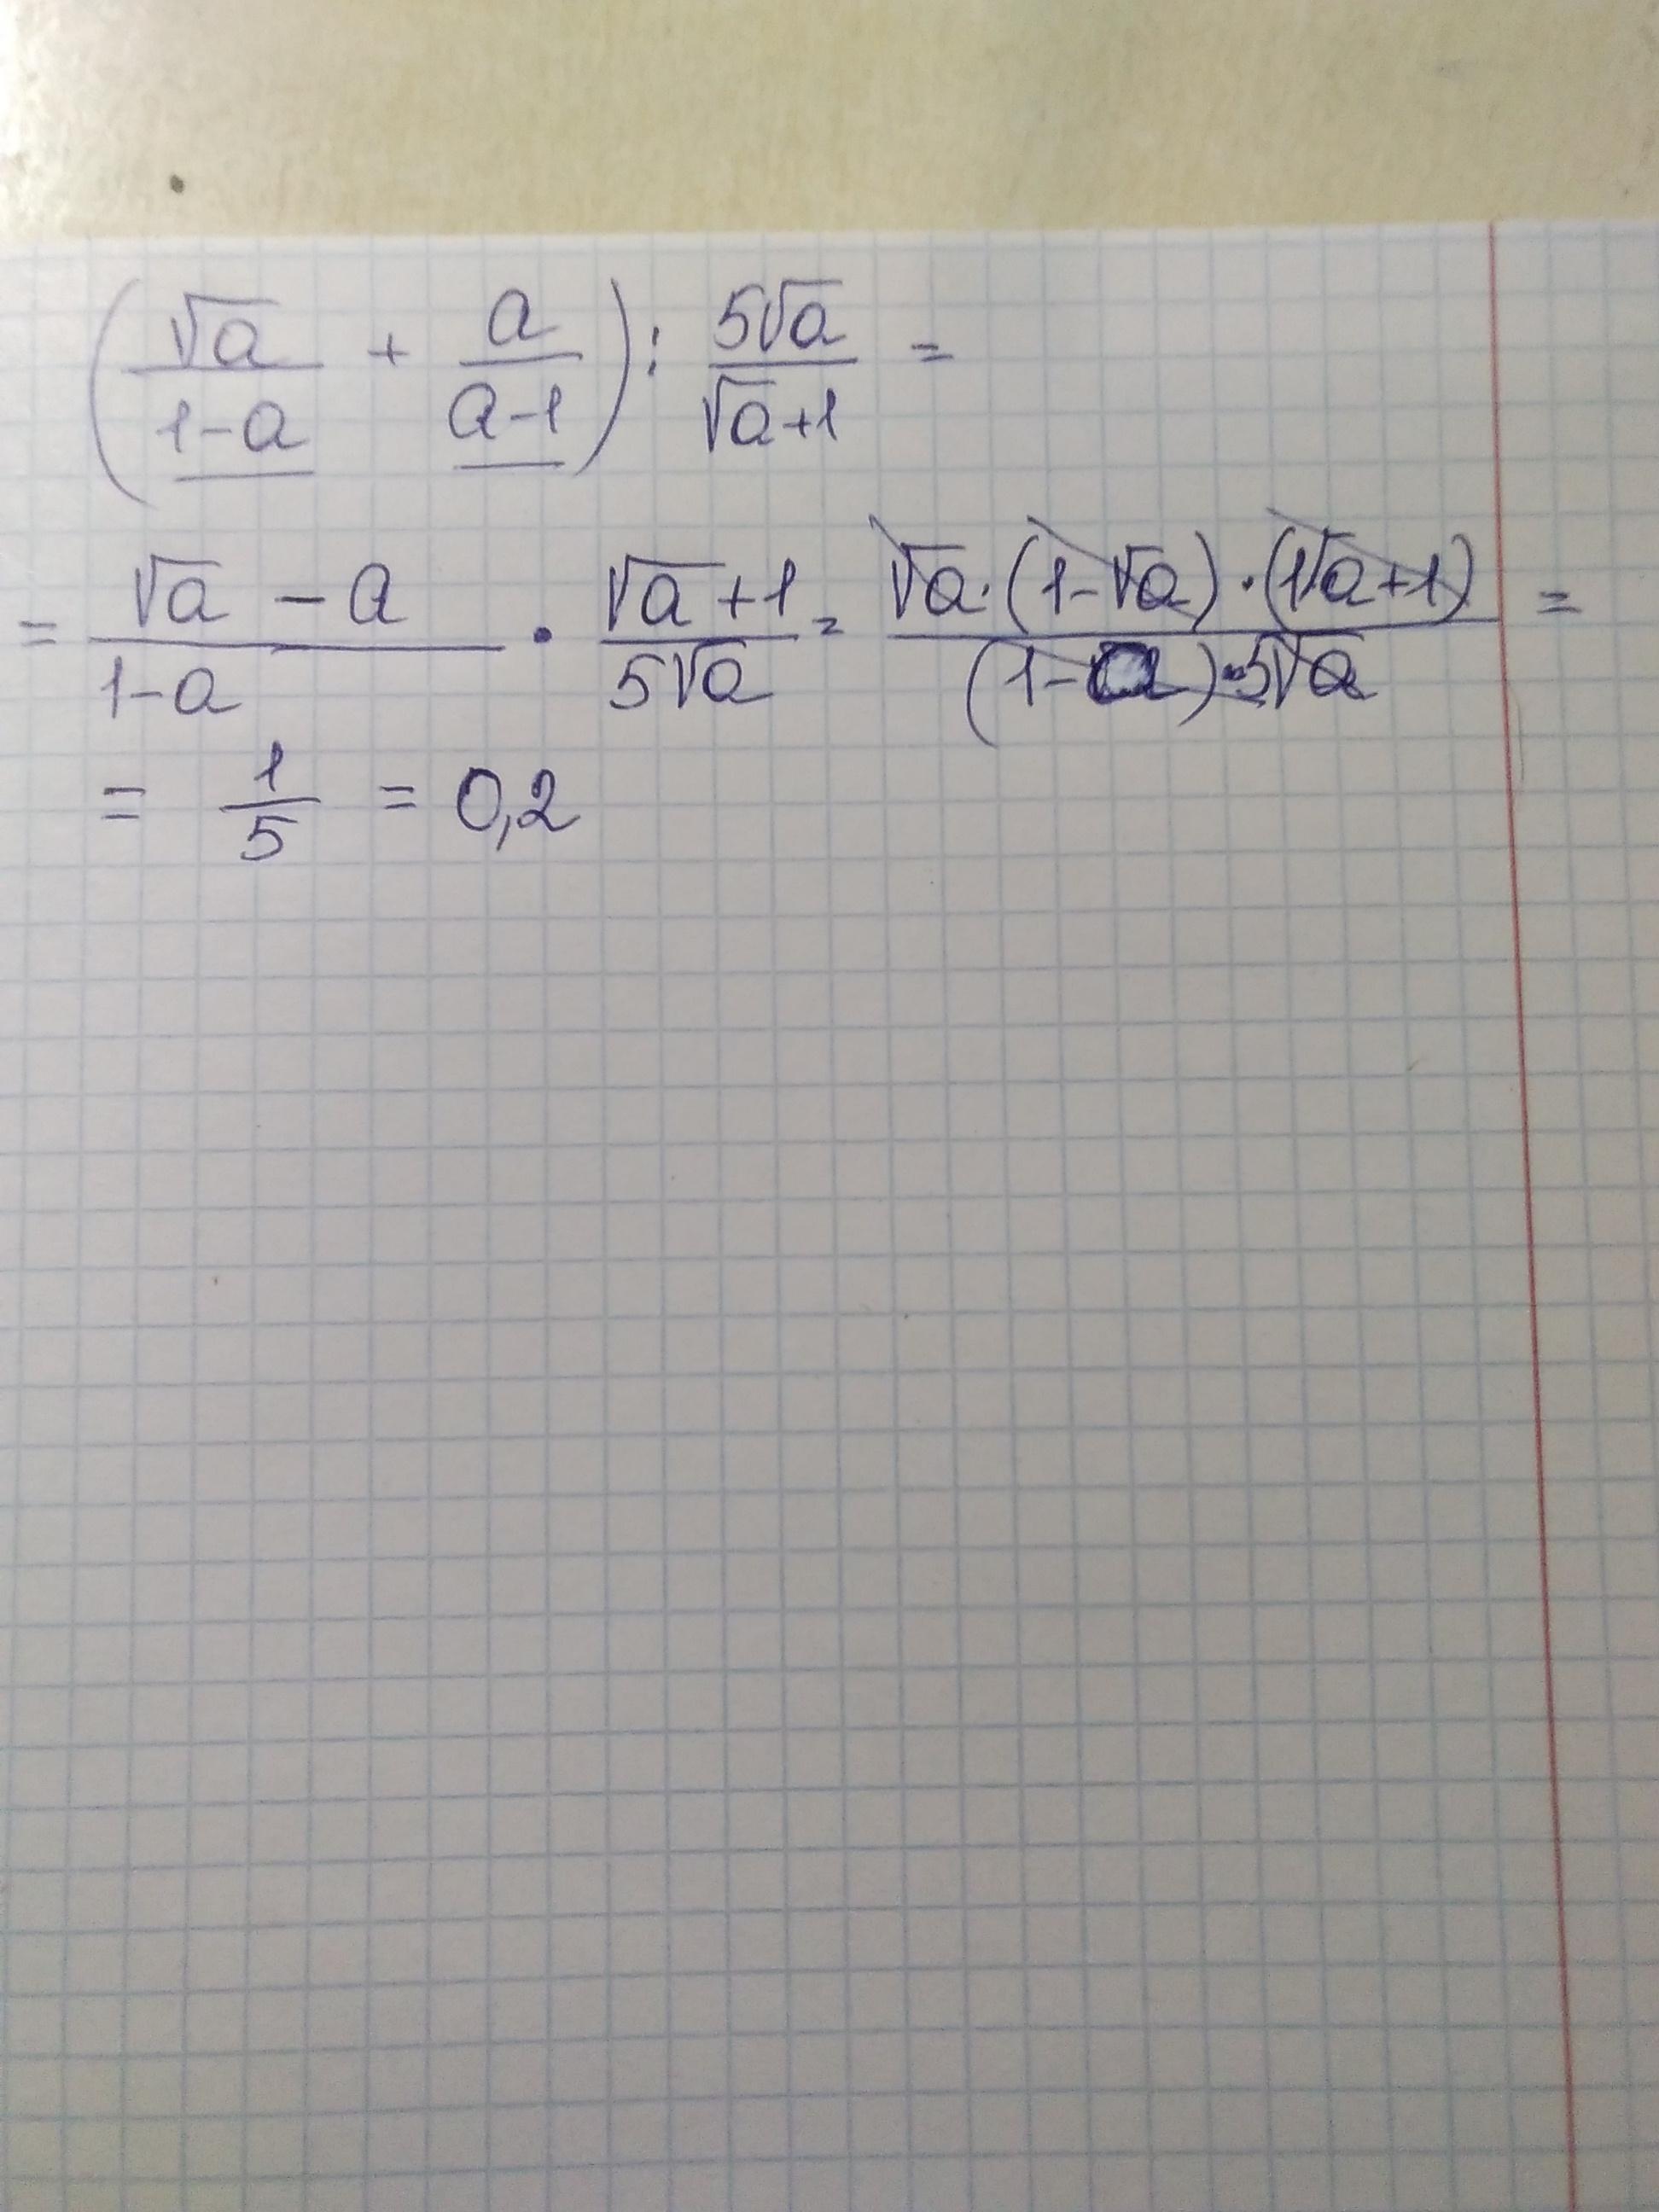 (√a/(1-a) + a/(a-1)) : 5√a/(√a+1) =
= (√a - a)/(1-a) · (√a+1)/(5√a) = (√a·(1-√a)·(√a+1))/((1-a)·5√a) =
= 1/5 = 0,2